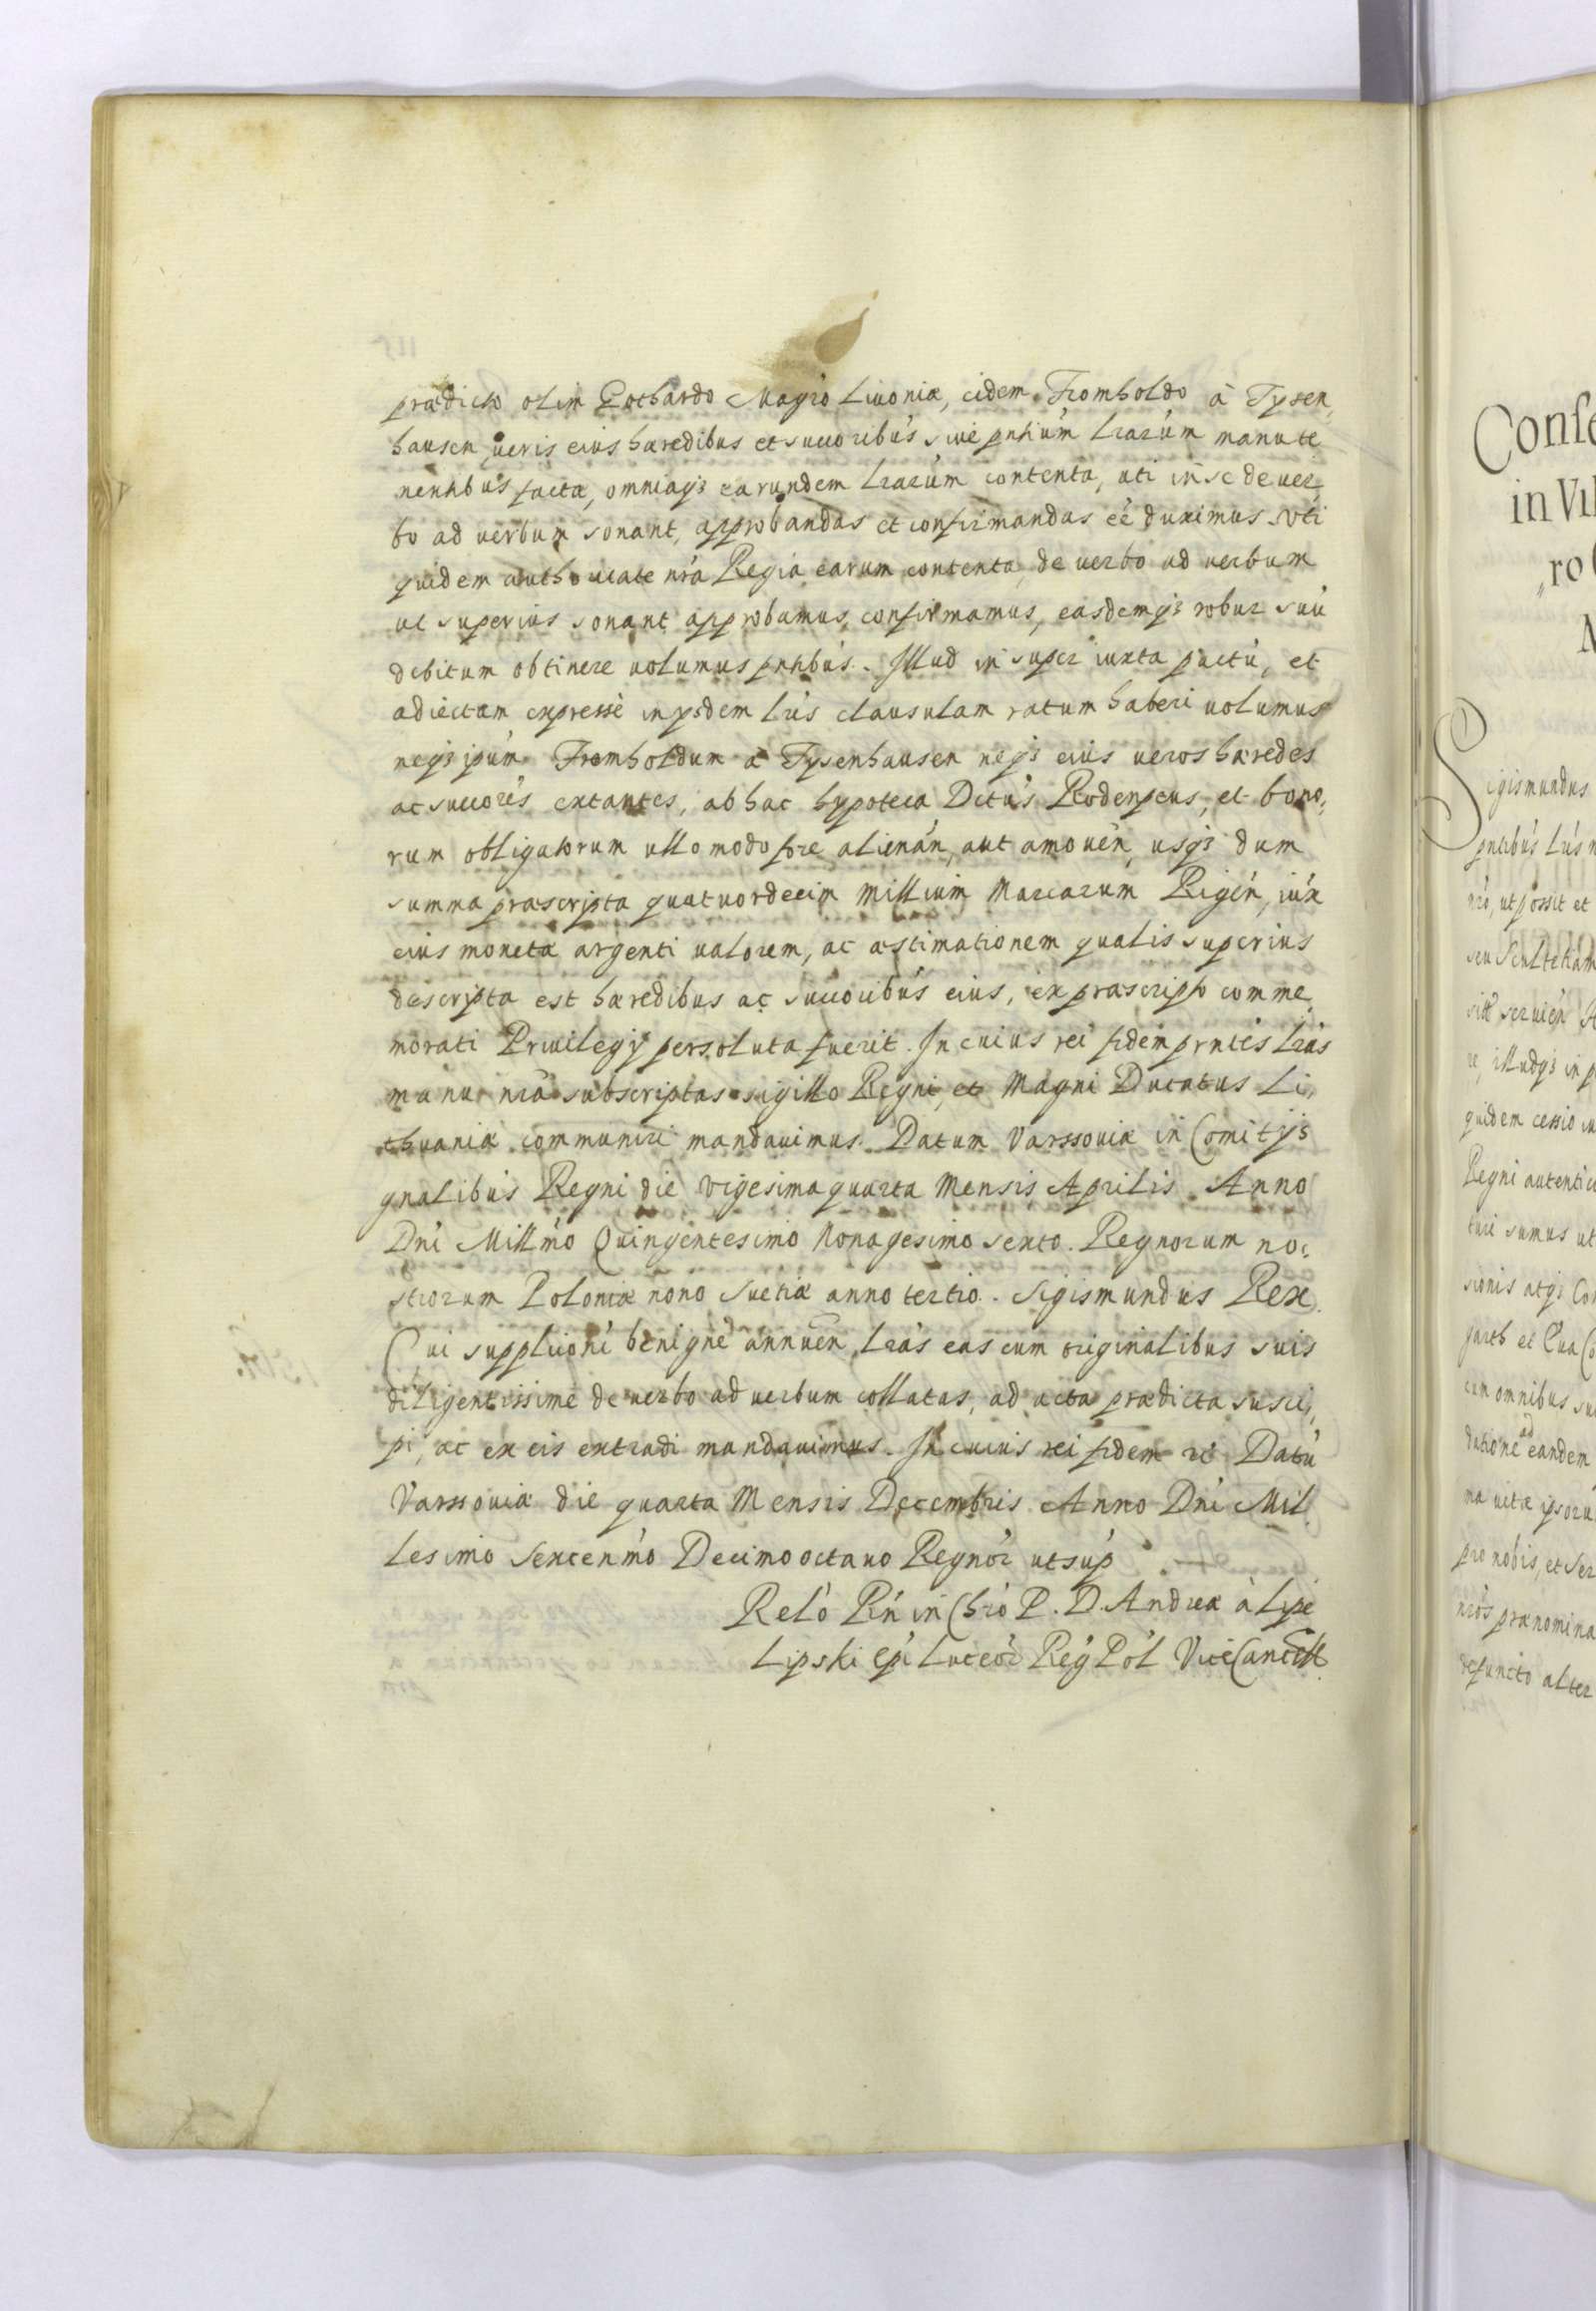 prædicto olim Gothardo Magro Livoniæ, eidem Fromholdo à Tysen,
hausen veris eius hæredibus et succoribus sive pntium Lrarum manute
nentibus facta, omniaq3 earundem Lrarum contenta, uti in se de ver,
bo ad verbum sonant, approbandas et confirmandas eé duximus. Uti
quidem authoritate nra Regia earum contenta, de verbo ad verbum
ut superius sonant approbamus, confirmamus, easdemq3 robur suu
debitum obtinere volumus pntibus. Illud insuper iuxta pactu, et
adiectam expressè in ysdem Lris clausulam ratum haberi volumus
neq3 ipum Fromholdum à Tysenhausen neq3 eius veros hæredes
ac succores extantes, ab hac hypoteca Dctus Rodenpeus, et bono,
rum obligatorum ullo modo fore alienan, aut amoven, usq3 dum
summa præscripta quatuordecim Millium Marcarum Rigen, iux
eius monetæ argenti valorem, ac æstimationem qualis superius
descripta est hæredibus ac succoribus eius, ex præscripto comme,
morati Privilegy persoluta fuerit. In cuius rei fidem prntes Lras
manu nra subscriptas sigillo Regni, et Magni Ducatus Li,
thuaniæ communiri mandavimus. Datum Varssoviæ in Comitijs
gnalibus Regni die vigesima quarta Mensis Aprilis. Anno
Dni Millmo Quingentesimo Nonagesimo sexto. Regnorum no,
strorum Poloniæ nono Suetiæ anno tertio. Sigismundus Rex.
Cui supplicioni benigne annuen, Lras eas cum originalibus suis
diligentissime de verbo ad verbum collatas, ad acta prædicta susci,
pi, ac ex eis extradi mandavimus. In cuius rei fidem rc Datu
Varssoviæ die quarta Mensis Decembris Anno Dni Mil,
lesimo Sexcenmo Decimo octavo Regnor ut sup
Relo Rn in Chro P. D. Andreæ à Lipe
Lipski Epi Luceor Reg Pol ViceCancell.
Conse
in Vil
ro
Sigismundus
pntibus Lris n
nro, ut possit et
seu Scultetiam
siæ servien
re, illudq3 in p
quidem cessio in
Regni autentic
turi sumus ut
sionis atq3 Con
cum omnibus su
datione ad eandem
ma vitæ ipsoru
pro nobis, et Ser
nros prænomina
defuncto alter